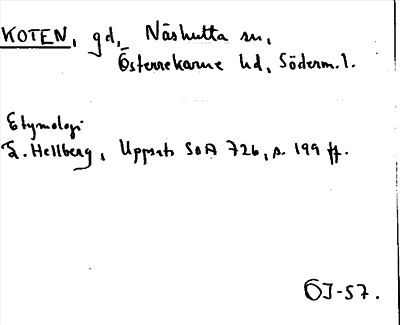 KOTEN, gd, Näshulta sn,
Österrekarne hd, Söderm. l.
Etymologi
L. Hellberg, Uppsats SOA 726, s. 199 ff.
ÖJ-57.